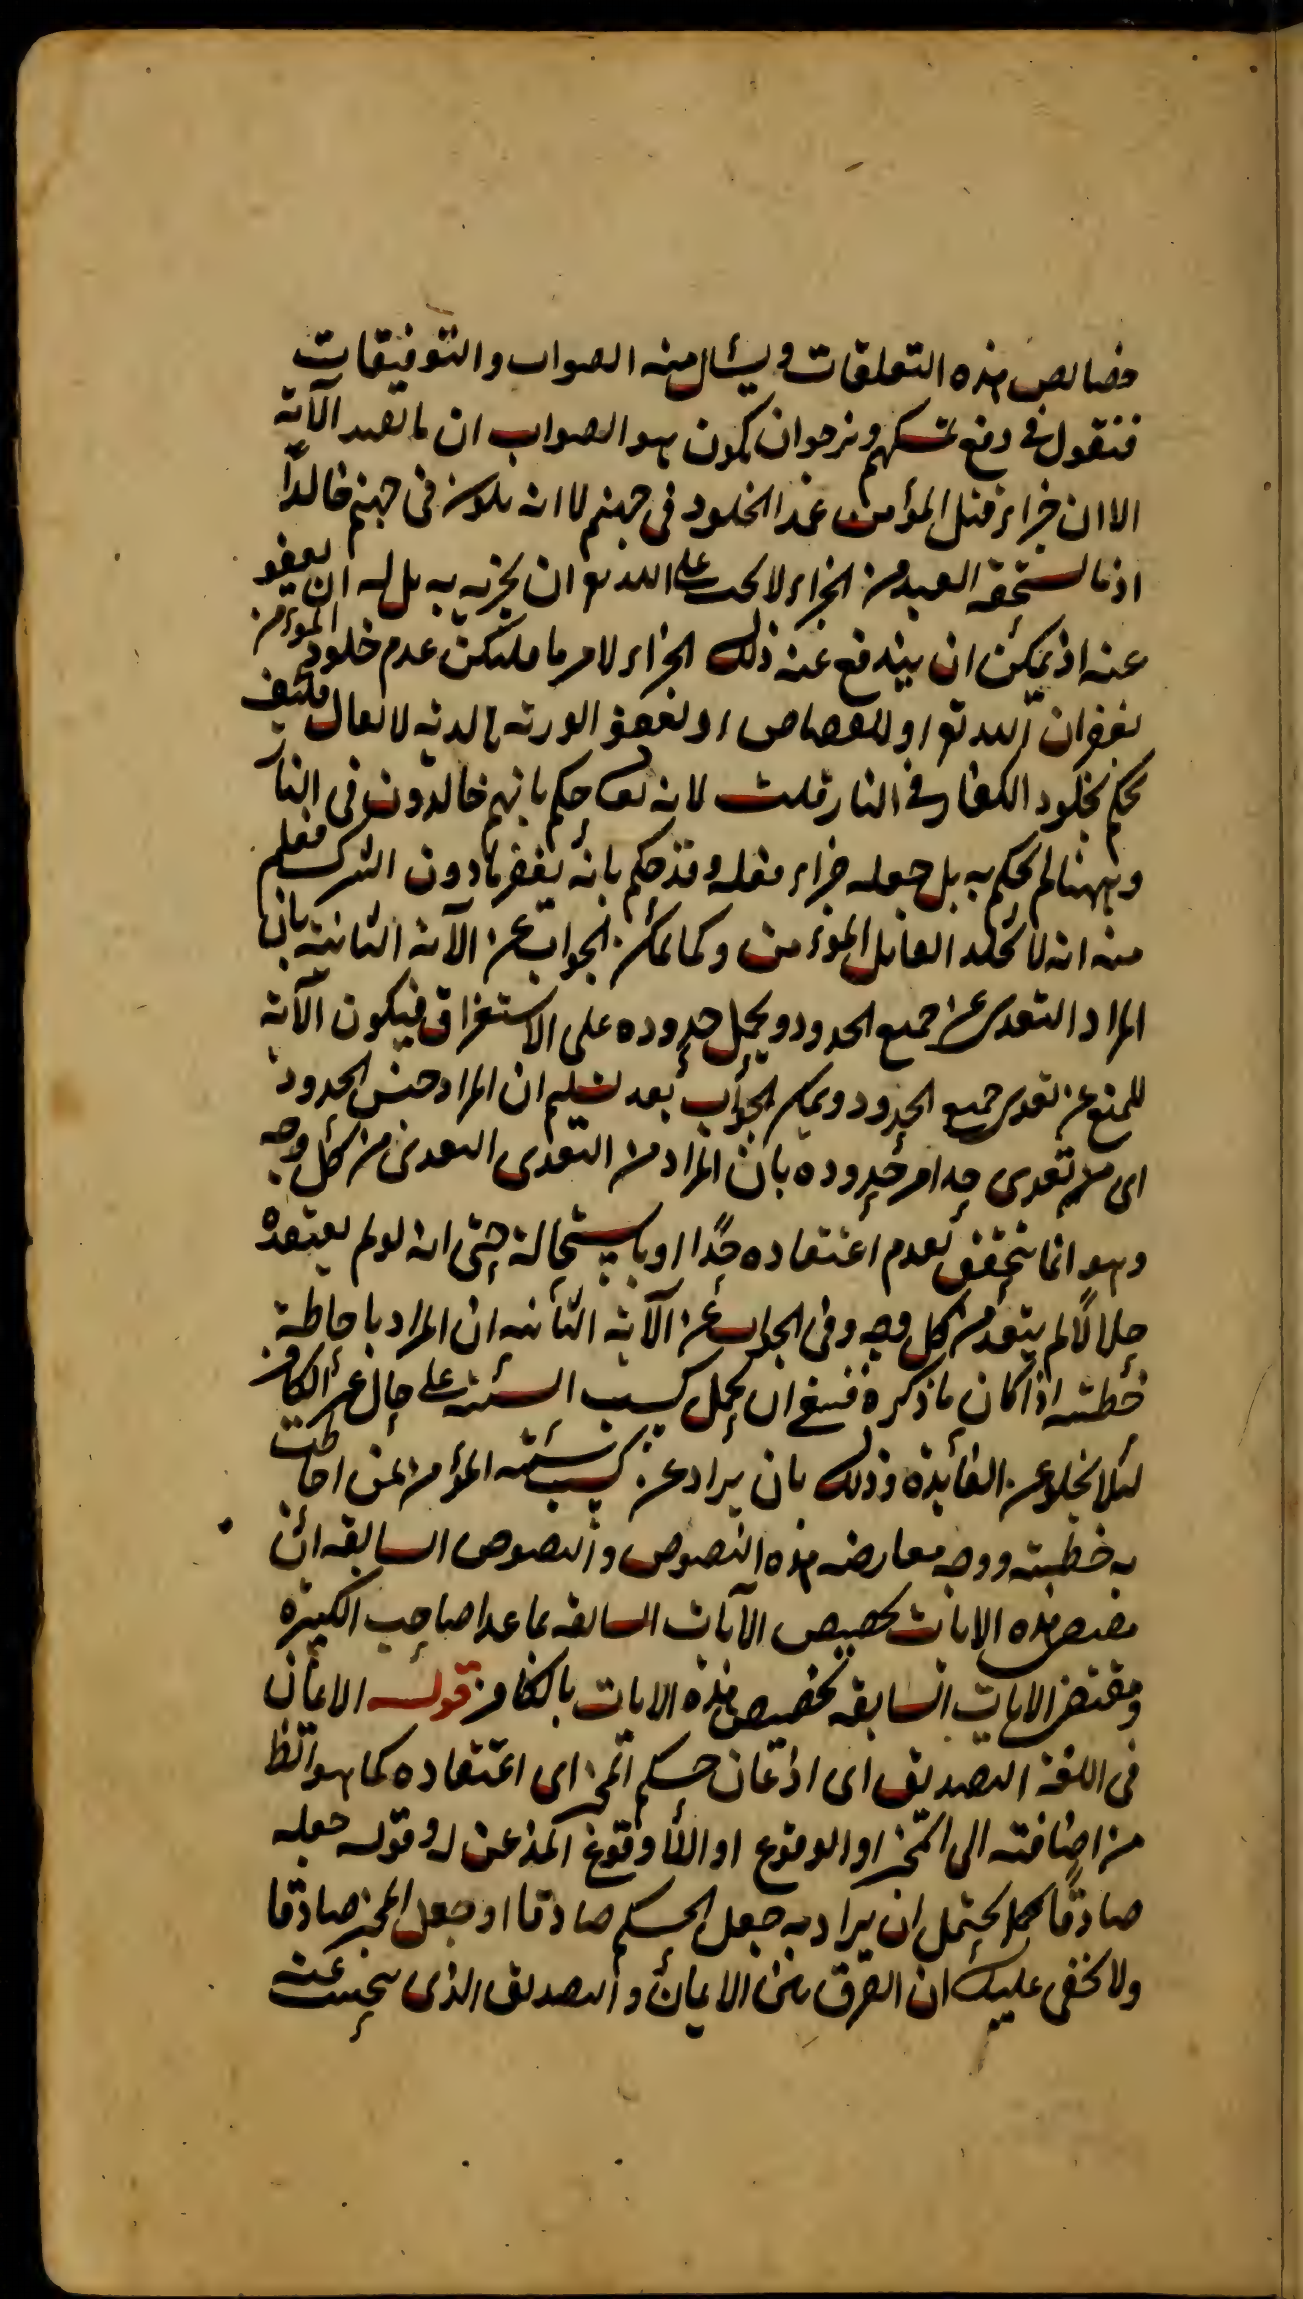 خصايص هذه التعلقات ويسأل منه الصواب والتوفيقات
فنقول في دفع تمسكهم ونرجو ان يكون هو الصواب ان ما تفيد الآية
الا ان جزاء قتل المؤمن عمدا الخلود في جهنم لا انه يكون في جهنم خالدًا
اذ ما يستحقه العبد من الجزاء لا يجب على الله تع ان يجزيه به بل له ان يعفو
عنه اذ يمكن ان يندفع عنه ذلك الجزاء لامر ما فليكن عدم خلود المؤمن
لغفران الله تع او للقصاص او لعفو الورثة بالدية لا يقال فكيف
يحكم بخلود الكفار في النار قلت لانه تعالى حكم بانهم خالدون في النار
وههنا لم يحكم به بل جعله جزاء فعله وقد حكم بانه يغفر ما دون الشرك فعلم
منه انه لا يخلد القاتل المؤمن وكما يمكن الجواب عن الآية الثانية بان
المراد التعدى عن جميع الحدود ويحمل حدوده على الاستغراق فيكون الآية
للمنع عن تعدى جميع الحدود ويمكن الجواب بعد تسليم ان المراد جنس الحدود
اى من تعدى حدا من حدوده بان المراد من التعدى التعدى من كل وجه
وهو انما يتحقق بعدم اعتقاده حدًا او باستحالته حتى انه لو لم يعتقده
حلالًا لم يتعد من كل وجه وفى الجواب عن الآية الثانية ان المراد باحاطة
خطيئته اذا كان ما ذكره فينبغى ان يحمل كسب السيئة على حال غير الكافر
لئلا يخلو عن الفائدة وذلك بان يراد من كسب سيئة المؤمن لمن احاطت
به خطيئته ووجه معارضة هذه النصوص والنصوص السابقة ان
مقتضى هذه الايات تخصيص الآيات السابقة بما عدا صاحب الكبيرة
ومقتضى الايات السابقة تخصيص هذه الايات بالكافر قوله الايمان
فى اللغة التصديق اى اذعان حكم المخبر اى اعتقاده كما هو الظ
من اضافته الى المخبر او الوقوع او اللا وقوع المذعن له وقوله جعله
صادقًا يحتمل ان يراد به جعل الحكم صادقا او جعل المخبر صادقا
ولا يخفى عليك ان الفرق بين الايمان والتصديق الذى يبحث عنه